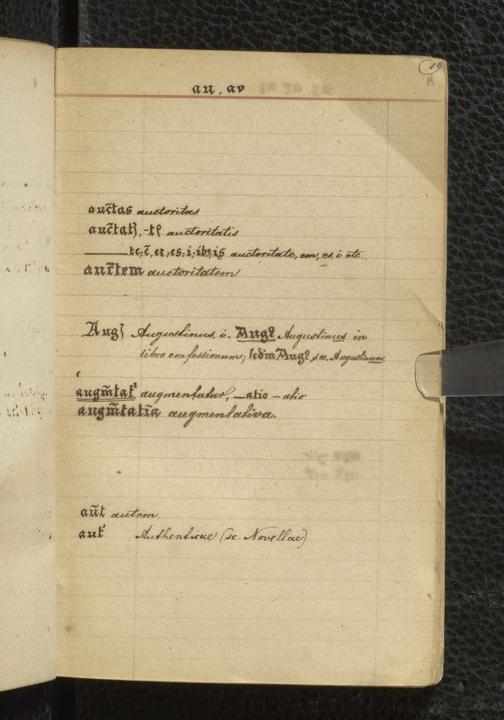 19
au, av
auctas auctoritas
auctatꝭ, -tꝭ auctoritatis
te; c̄, er; es; i; ibꝫ; is auctoritate, em, es, i etc.
auctem auctoritatem
Augꝭ Augustinus, i. Augꝰ Augustinus in
libro confessionum; sc̄dm Augꝰ, sec. Augustinum
augm̄tat᷑ augmentatur, _atio - atio
augm̄tatia augmentativa.
aūt autem.
aut̄ Authenticae (sc. Novellae)